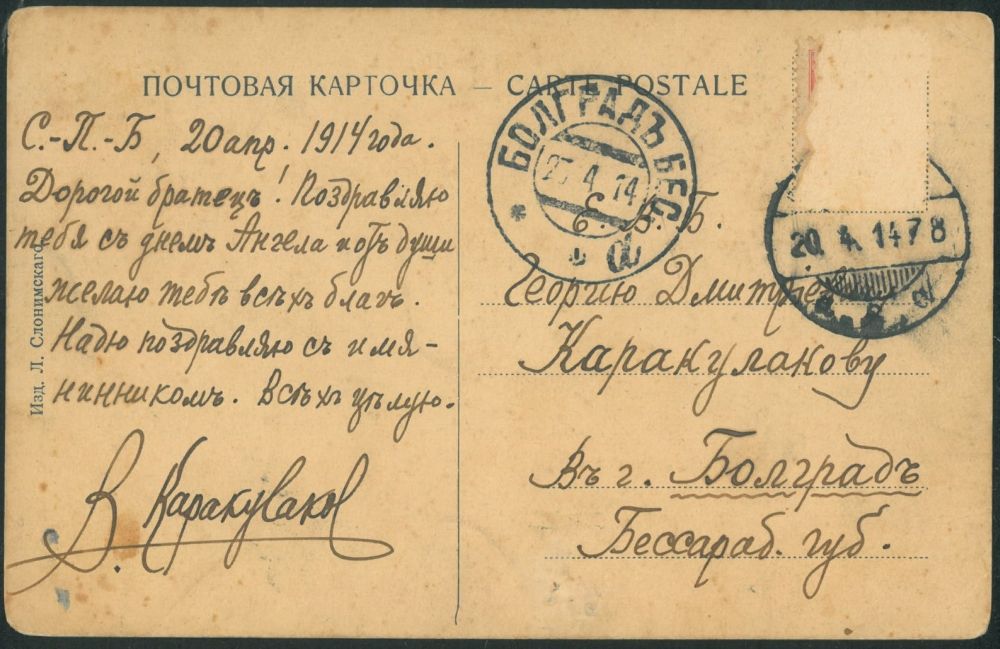 ПОЧТОВАЯ КАРТОЧКА — CARTE POSTALE
С.-П.-Б, 20 апр. 1914 года.
Дорогой братецъ! Поздравляю
тебя съ днемъ Ангела и отъ души
желаю тебѣ всѣхъ благъ.
Надю поздравляю съ имя-
нинникомъ. Всѣхъ цѣлую.
В. Каракулаковъ
Изд. Л. Слонимскаго
БОЛГРАДЪ БЕС.
4 14
20. 4. 14 7 8
Е. В. Б.
Георгію
Каракулакову
Въ г. Болградъ
Бессараб. губ.